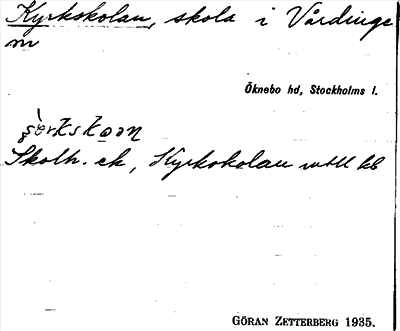 Kyrkskolan, skola i Vårdinge
m
Öknebo hd, Stockholms l.
Skolh. ek, Kyrkskolan uttl kb
GÖRAN ZETTERBERG 1935.